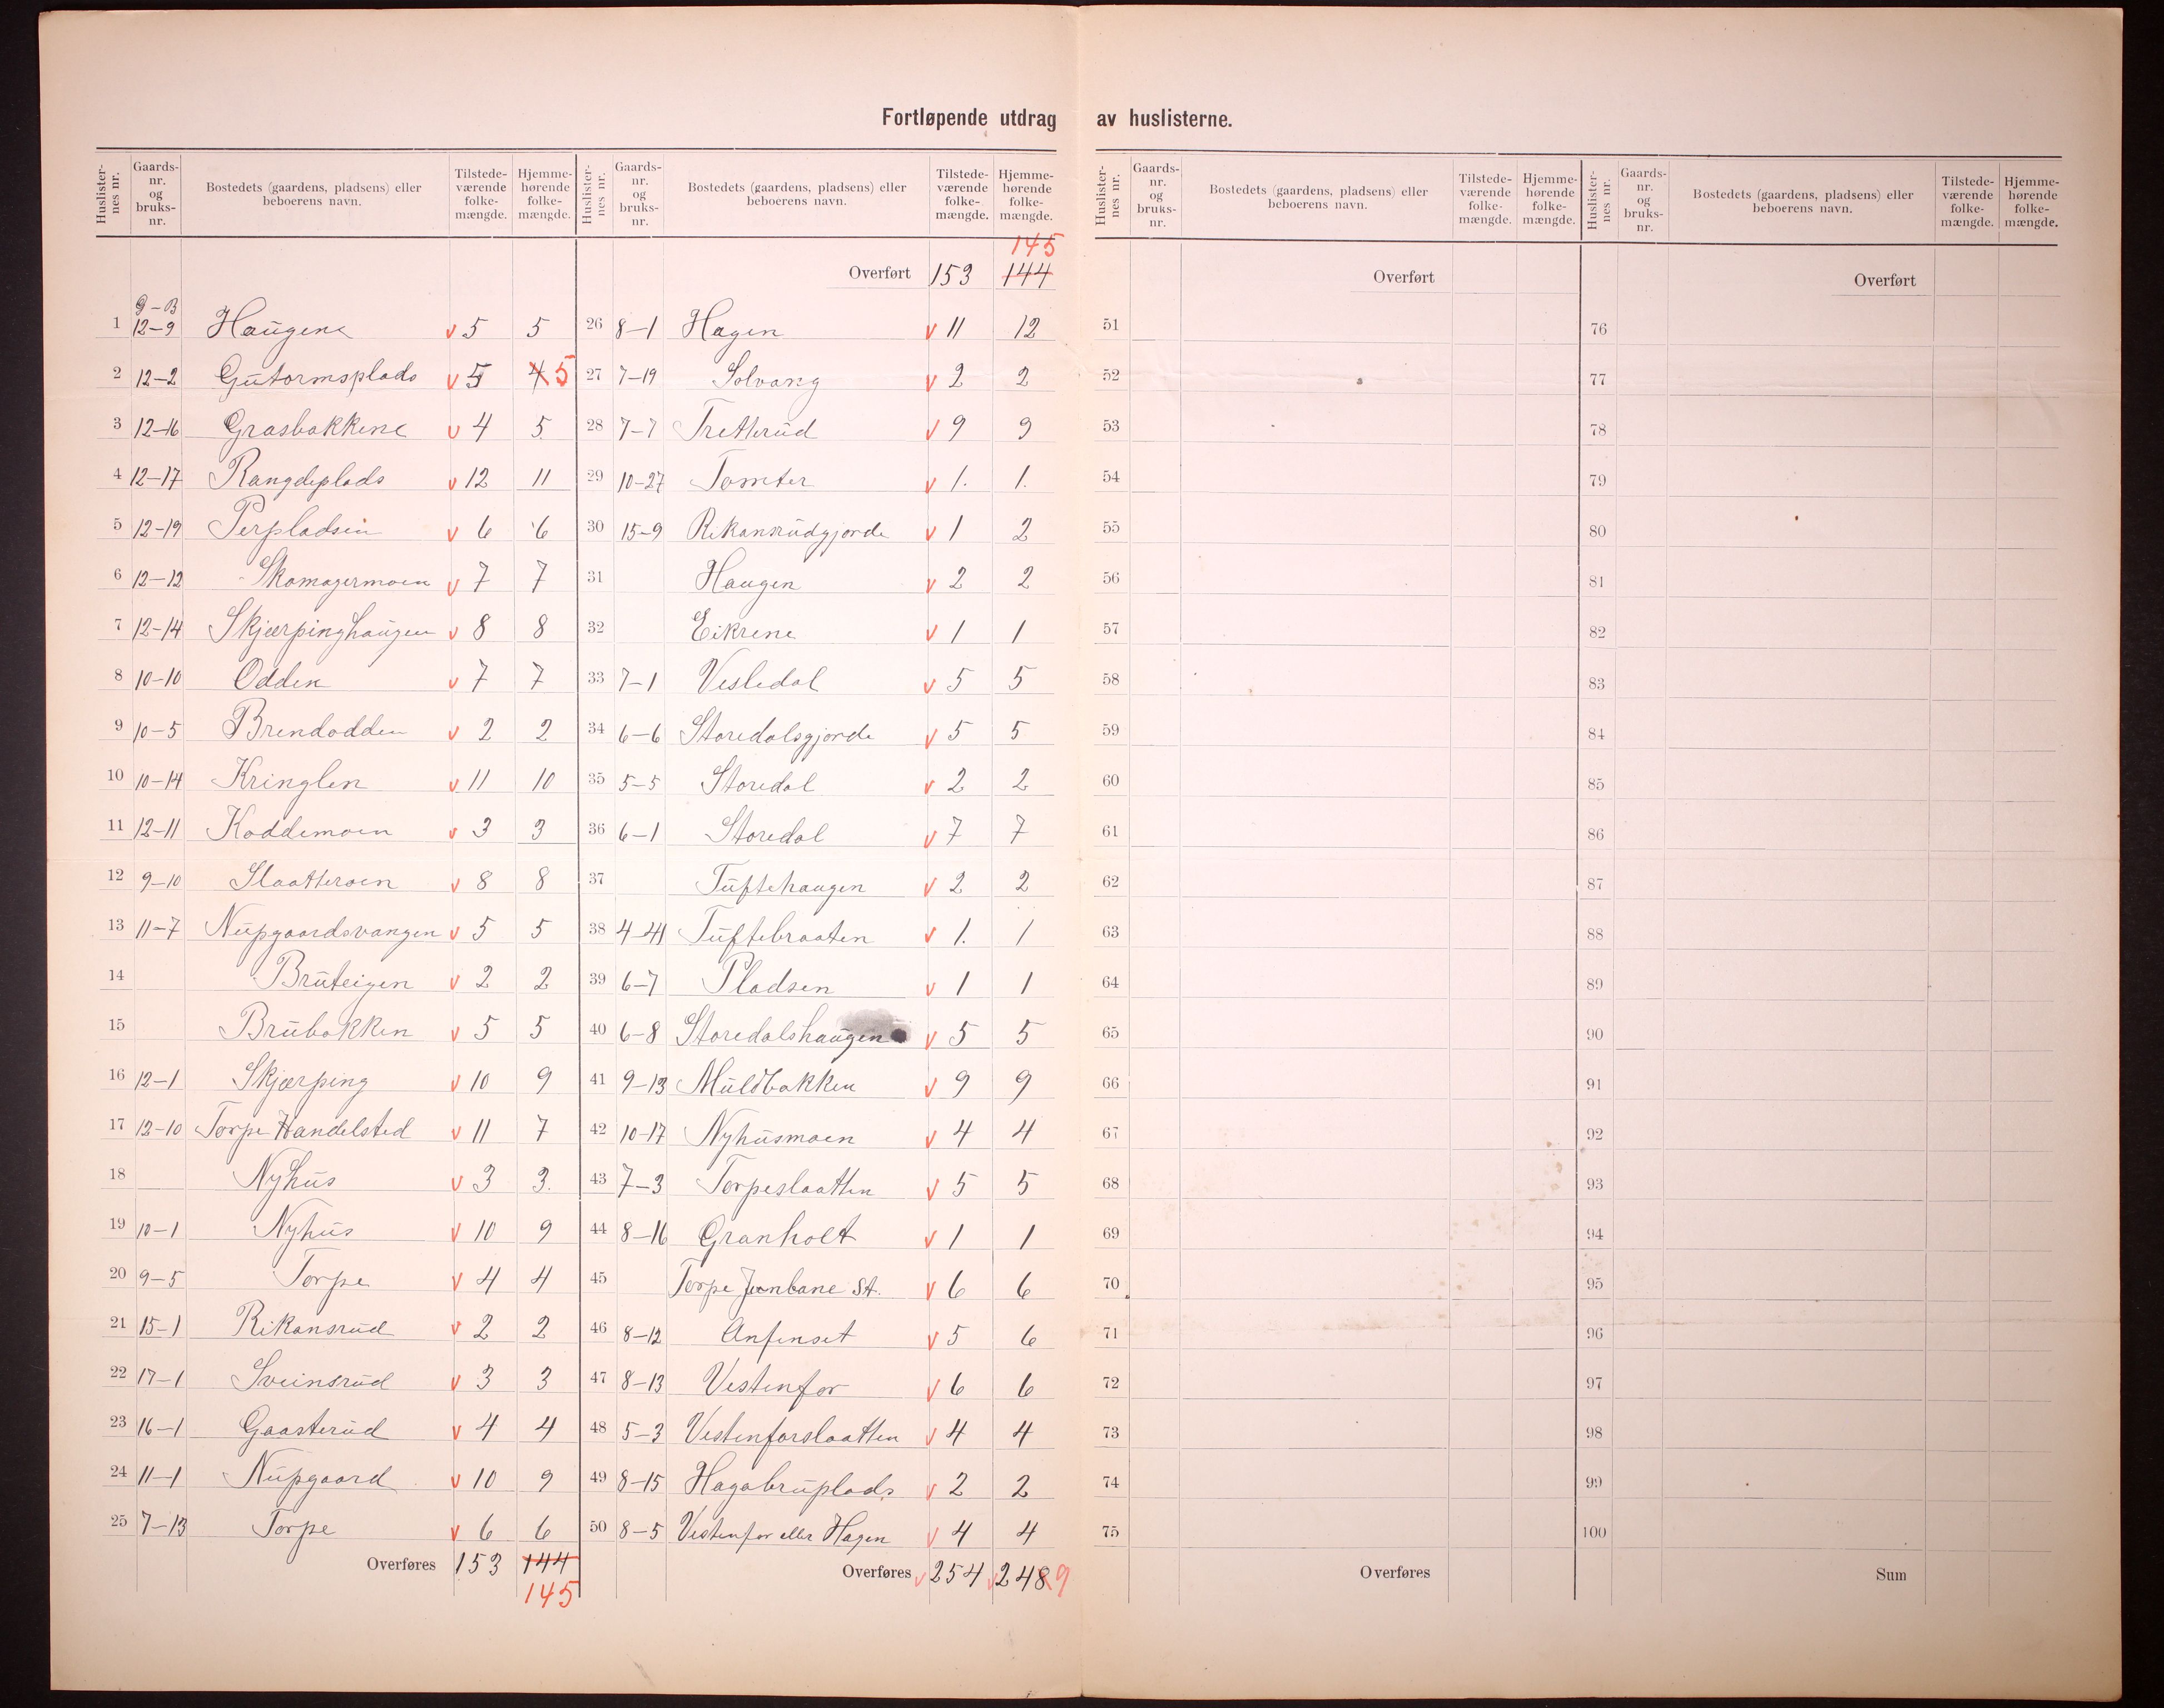 Fortløpende utdrag av huslisterne.
Huslister-nes nr. Gaards-nr. og bruks-nr. Bostedets (gaardens, pladsens) eller beboerens navn. Tilstede-værende folke-mængde. Hjemme-hørende folke-mængde.
1 9-13 12-9 Haugene v 5 5
2 12-2 Gutormsplads v 5 4 5
3 12-16 Grasbakkene v 4 5
4 12-17 Rangdeplads v 12 11
5 12-19 Perpladsen v 6 6
6 12-12 Skomagermoen v 7 7
7 12-14 Skjærpinghaugen v 8 8
8 10-10 Odden v 7 7
9 10-5 Brendodden v 2 2
10 10-14 Kringlen v 11 10
11 12-11 Koddemoen v 3 3
12 9-10 Slaatteroen v 8 8
13 11-7 Nupgaardsvangen v 5 5
14 Bruteigen v 2 2
15 Brubakken v 5 5
16 12-1 Skjærping v 10 9
17 12-10 Torpe Handelsted v 11 7
18 Nyhus v 3 3.
19 10-1 Nyhus v 10 9
20 9-5 Torpe v 4 4
21 15-1 Rikansrud v 2 2
22 17-1 Sveinsrud v 3 3
23 16-1 Gaasterud v 4 4
24 11-1 Nupgaard v 10 9
25 7-13 Torpe v 6 6
Overføres 153 144
145
Huslister-nes nr. Gaards-nr. og bruks-nr. Bostedets (gaardens, pladsens) eller beboerens navn. Tilstede-værende folke-mængde. Hjemme-hørende folke-mængde.
145
Overført 153 144
26 8-1 Hagen v 11 12
27 7-19 Solvang v 2 2
28 7-7 Tretterud v 9 9
29 10-27 Tomter v 1. 1.
30 15-9 Rikansrudgjorde v 1 2
31 Haugen v 2 2
32 Eikrene v 1 1
33 7-1 Vesledal v 5 5
34 6-6 Storedalsgjorde v 5 5
35 5-5 Storedal v 2 2
36 6-1 Storedal v 7 7
37 Tuftehaugen v 2 2
38 4-41 Tuftebraaten v 1. 1
39 6-7 Pladsen v 1 1
40 6-8 Storedalshaugen v 5 5
41 9-13 Muldbakken v 9 9
42 10-17 Nyhusmoen v 4 4
43 7-3 Torpeslaatten v 5 5
44 8-16 Granholt v 1 1
45 Torpe Jernbane St. v 6 6
46 8-12 Anfinset v 5 6
47 8-13 Vestenfor v 6 6
48 5-3 Vestenforslaatten v 4 4
49 8-15 Hagabruplads v 2 2
50 8-5 Vestenfor eller Hagen v 4 4
Overføres v 254 v 248 9
Huslister-nes nr. Gaards-nr. og bruks-nr. Bostedets (gaardens, pladsens) eller beboerens navn. Tilstede-værende folke-mængde. Hjemme-hørende folke-mængde.
Overført
51
52
53
54
55
56
57
58
59
60
61
62
63
64
65
66
67
68
69
70
71
72
73
74
75
Overføres
Huslister-nes nr. Gaards-nr. og bruks-nr. Bostedets (gaardens, pladsens) eller beboerens navn. Tilstede-værende folke-mængde. Hjemme-hørende folke-mængde.
Overført
76
77
78
79
80
81
82
83
84
85
86
87
88
89
90
91
92
93
94
95
96
97
98
99
100
Sum